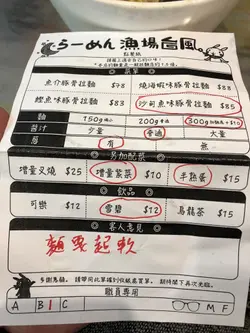 らーめん 漁場台風
點菜紙
菜單
魚介豚骨拉麵 $98
燒海蝦味豚骨拉麵
鰹魚味豚骨拉麵 $83
沙甸魚味豚骨拉麵
麵 150g 200g 300g
醬汁 少量 普通 大量
有 無
另加配菜
增量叉燒 $25 增量紫菜 $10 半熟蛋 $15
飲品
可樂 $12 雪碧 $12 烏龍茶 $15
客人意見
麵要起軟
職員專用
A B C M F